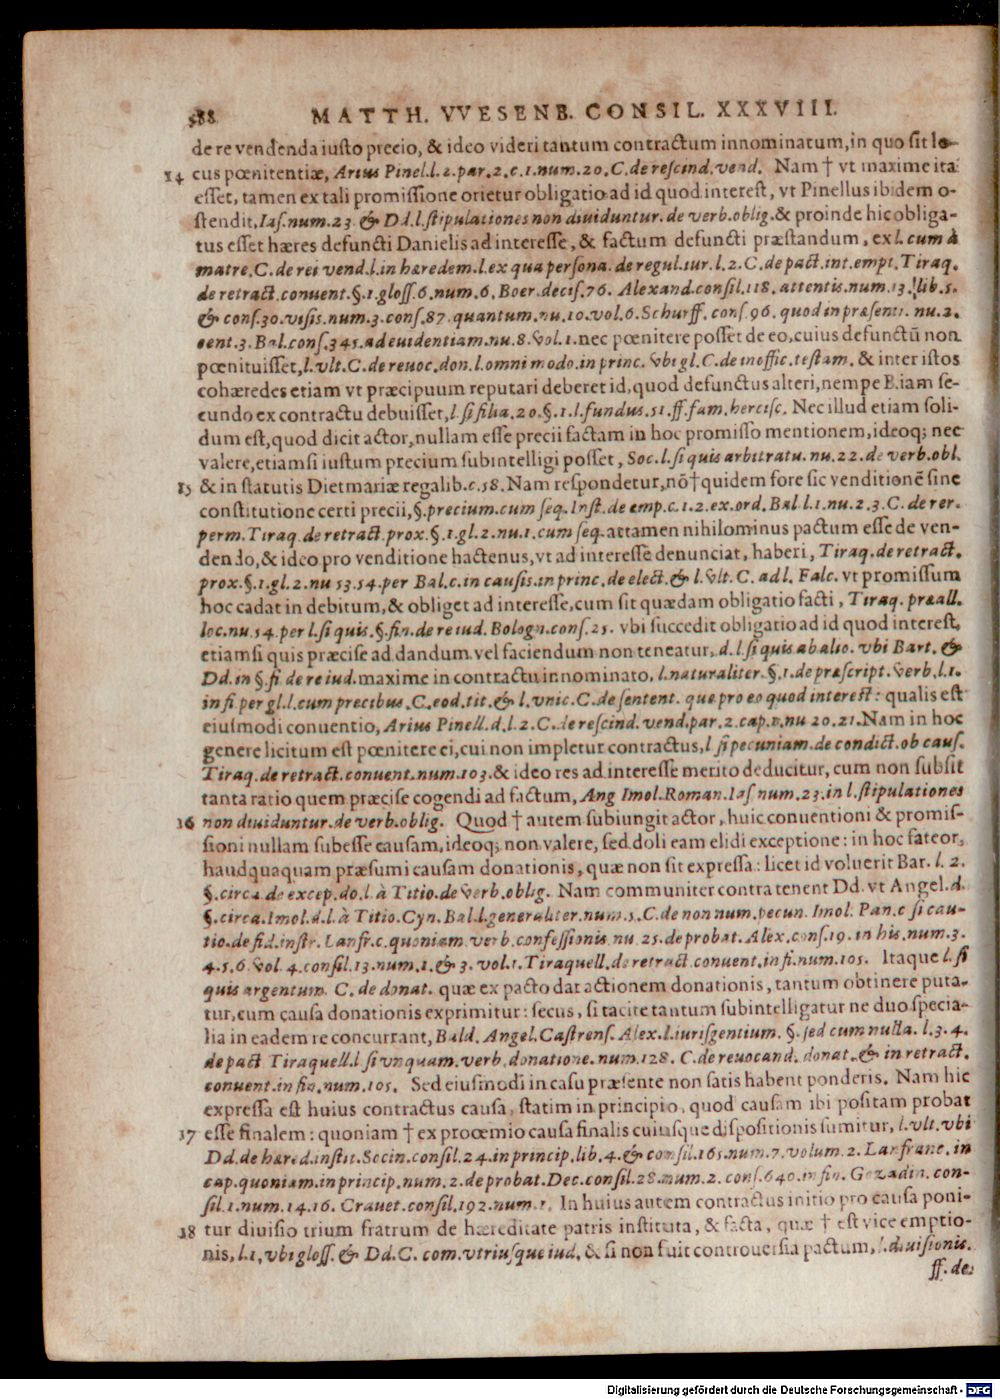 388 MATTH. VVESENB. CONSIL. XXXVIII.
de re vendenda iusto precio, & ideo videri tantum contractum innominatum, in quo sit lo-
14 cus pœnitentiæ, Arius Pinel. l. 2. par. 2. c. 1. num. 20. C. de rescind. vend. Nam † vt maxime ita
esset, tamen ex tali promissione orietur obligatio ad id quod interest, vt Pinellus ibidem o-
stendit, Ias. num. 23. & Dd. l. stipulationes non diuiduntur. de verb. oblig. & proinde hic obliga-
tus esset hæres defuncti Danielis ad interesse, & factum defuncti præstandum, ex l. cum à
matre. C. de rei vend. l. in hæredem. l. ex qua persona. de regul. iur. l. 2. C. de pact. int. empt. Tiraq.
de retract. conuent. §. 1. gloss. 6. num. 6. Boer. decis. 76. Alexand. consil. 118. attentis. num. 13. lib. 5.
& cons. 30. visis. num. 3. cons. 87. quantum. nu. 10. vol. 6. Schurff. cons. 96. quod in præsenti. nu. 2.
cent. 3. Bal. cons. 345. ad euidentiam. nu. 8. vol. 1. nec pœnitere posset de eo, cuius defunctũ non
pœnituisset, l. vlt. C. de reuoc. don. l. omnimodo. in princ. vbi gl. C. de inoffic. testam. & inter istos
cohæredes etiam vt præcipuum reputari deberet id, quod defunctus alteri, nempe B. iam se-
cundo ex contractu debuisset, l. si filia. 20. §. 1. l. fundus. 51. ff. fam. hercisc. Nec illud etiam soli-
dum est, quod dicit actor, nullam esse precii factam in hoc promisso mentionem, ideoq; nec
valere, etiamsi iustum precium subintelligi posset, Soc. l. si quis arbitratu. nu. 22. de verb. obl.
15 & in statutis Dietmariæ regalib. c. 58. Nam respondetur, nõ † quidem fore sic venditionẽ sine
constitutione certi precii, §. precium. cum seq. Inst. de emp. c. 1. 2. ex. ord. Bal. l. 1. nu. 2. 3. C. de rer.
perm. Tiraq. de retract. prox. §. 1. gl. 2. nu. 1. cum seq. attamen nihilominus pactum esse de ven-
dendo, & ideo pro venditione hactenus, vt ad interesse denunciat, haberi, Tiraq. de retract.
prox. §. 1. gl. 2. nu 53. 54. per Bal. c. in causis. in princ. de elect. & l. vlt. C. ad l. Falc. vt promissum
hoc cadat in debitum, & obliget ad interesse, cum sit quædam obligatio facti, Tiraq. præall.
loc. nu. 54. per l. si quis. §. fin. de re iud. Bologn. cons. 25. vbi succedit obligatio ad id quod interest,
etiamsi quis præcise ad dandum vel faciendum non teneatur, d. l. si quis ab alio. vbi Bart. &
Dd. in §. fi. de re iud. maxime in contractu innominato, l. naturaliter. §. 1. de præscript. verb. l. 1.
in fi per gl. l. cum precibus. C. eod. tit. & l. vnic. C. de sentent. que pro eo quod interest: qualis est
eiusmodi conuentio, Arius Pinell. d. l. 2. C. de rescind. vend. par. 2. cap. nu 20. 21. Nam in hoc
genere licitum est pœnitere ei, cui non impletur contractus, l si pecuniam. de condict. ob caus.
Tiraq. de retract. conuent. num. 103. & ideo res ad interesse merito deducitur, cum non subsit
tanta ratio quem præcise cogendi ad factum, Ang Imol. Roman. Ias num. 23. in l. stipulationes
16 non diuiduntur. de verb. oblig. Quod † autem subiungit actor, huic conuentioni & promis-
sioni nullam subesse causam, ideoq; non valere, sed doli eam elidi exceptione: in hoc fateor,
haudquaquam præsumi causam donationis, quæ non sit expressa: licet id voluerit Bar. l. 2.
§. circa. de excep. do. l. à Titio. de verb. oblig. Nam communiter contra tenent Dd. vt Angel. d.
§. circa. Imol. d. l. à Titio. Cyn. Bal. l. generaliter. num. 5. C. de non num. pecun. Imol. Pan. c si cau-
tio. de fid. instr. Lanfr. c. quoniam. verb. confessionis nu. 25. de probat. Alex. cons. 19. in his. num. 3.
4. 5. 6. vol. 4. consil. 13. num. 1. & 3. vol. 1. Tiraquell. de retract. conuent. in fi. num. 105. Itaque l. si
quis argentum. C. de donat. quæ ex pacto dat actionem donationis, tantum obtinere puta-
tur, cum causa donationis exprimitur: secus, si tacite tantum subintelligatur ne duo specia-
lia in eadem re concurrant, Bald. Angel. Castrens. Alex. l. iurisgentium. §. sed cum nulla. l. 3. 4.
de pact Tiraquell. l si vnquam. verb. donatione. num. 128. C. de reuocand. donat. & in retract.
conuent. in fin. num. 105. Sed eiusmodi in casu præsente non satis habent ponderis. Nam hic
expressa est huius contractus causa, statim in principio, quod causam ibi positam probat
17 esse finalem: quoniam † ex procemio causa finalis cuiusque dispositionis sumitur, l. vlt. vbi
Dd. de hæred. instit. Socin. consil. 24. in princip. lib. 4. & consil. 165. num. 7. volum. 2. Lanfranc. in
cap. quoniam. in princip. num. 2. de probat. Dec. consil. 28. num. 2. cons. 640. in fin. Gozadin. con-
sil. 1. num. 14. 16. Crauet. consil. 192. num. 1. In huius autem contractus initio pro causa poni-
18 tur diuisio trium fratrum de hæreditate patris instituta, & facta, quæ † est vice emptio-
nis, l. 1. vbi gloss. & Dd. C. com. vtriusque iud. & si non fuit controuersia pactum, l. diuisionis.
ff. de
Digitalisierung gefördert durch die Deutsche Forschungsgemeinschaft - DFG